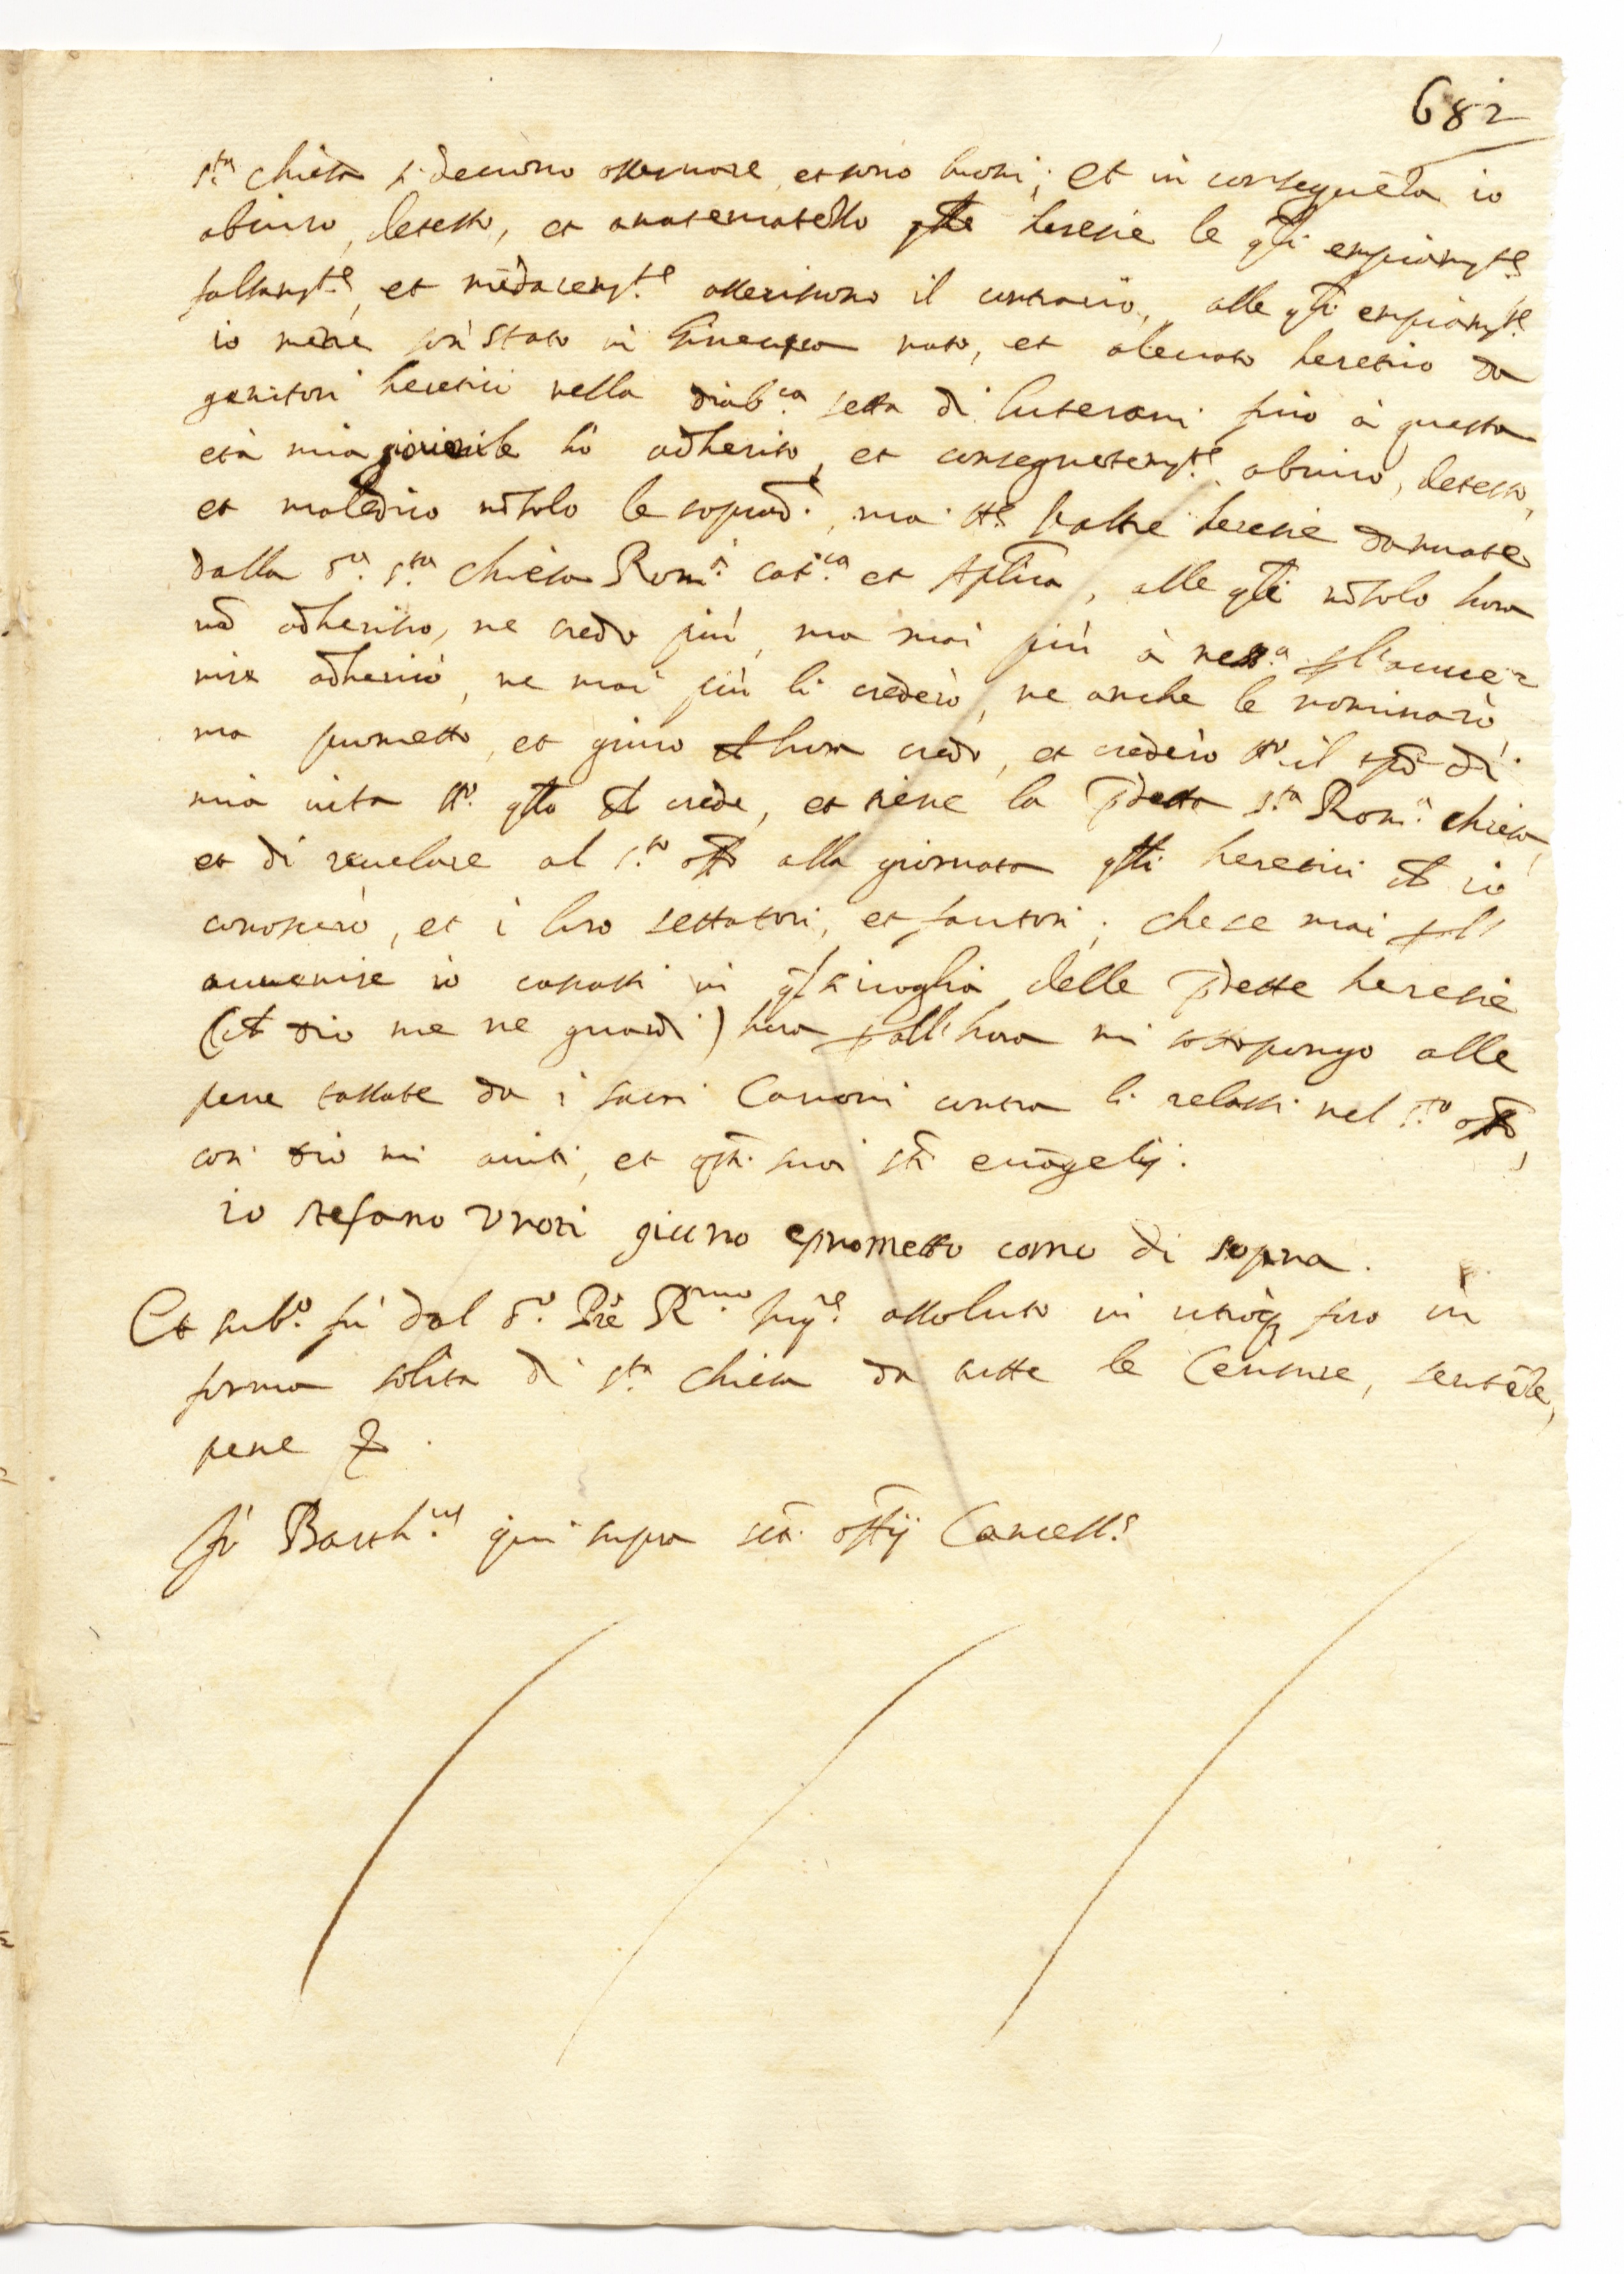 682
s.ta chiesa si deuono osseruare, et sono buoni; et in conseguēza io
abiuro, detesto, et anatematezzo q̄lle heresie le q̄li empiam.te
falsam.te, et mēdacem.te asseriscono il contrario, alle q̄li empiam.te
io mētre son stato in Gineura nato, et aleuato heretico da
genitori heretici nella diab.ca setta di luterani fino à questa
età mia giouenile hò adherito, et conseguētem.te abiuro, detesto,
et maledico nō solo le soprad.e, ma tt.e l'altre heresie dannate
dalla d.a s.ta chiesa Rom.a cat.ca et Apl̄ica, alle q̄li nō solo hora
nō adherisco, ne credo più, ma mai più à ness.a p l'auue=
nire adherirò, ne mai più li crederò, ne anche le nominarò,
ma prometto, et giuro ch hora credo, et crederò tt.o il tp̄o di
mia vita tt.o q̄llo ch crede, et tiene la p̄detta s.ta Rom.a chiesa,
et di reuelare al s.to off.o alla giornata q̄lli heretici ch io
conoscerò, et i loro settatori, et fautori; che se mai p l'
auuenire io cascassi in q̄lsiuoglia delle p̄dette heresie
(ch Dio me ne guardi) hora p all'hora mi sottopongo alle
pene tassate da i sacri Canoni contra li relassi nel s.to off.o,
così Dio mi aiuti, et q̄sti suoi s.ti euāgelij.
io stefano vnoti giuro e prometto come di sopra.
Et sub.o fù dal d.o Prē R.mo Inq.re assoluto in utroq; foro in
forma solita di s.ta chiesa da tutte le Censure, sentēze,
pene &.
fr. Barth.us qui supra scti officij Cancell.s